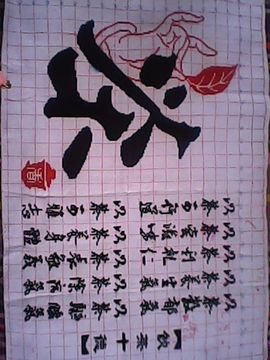 茶
【飲茶十德】
以茶散郁氣
以茶驅睡氣
以茶養生氣
以茶除病氣
以茶利礼仁
以茶表敬意
以茶嘗滋味
以茶養身體
以茶可行道
以茶可雅志